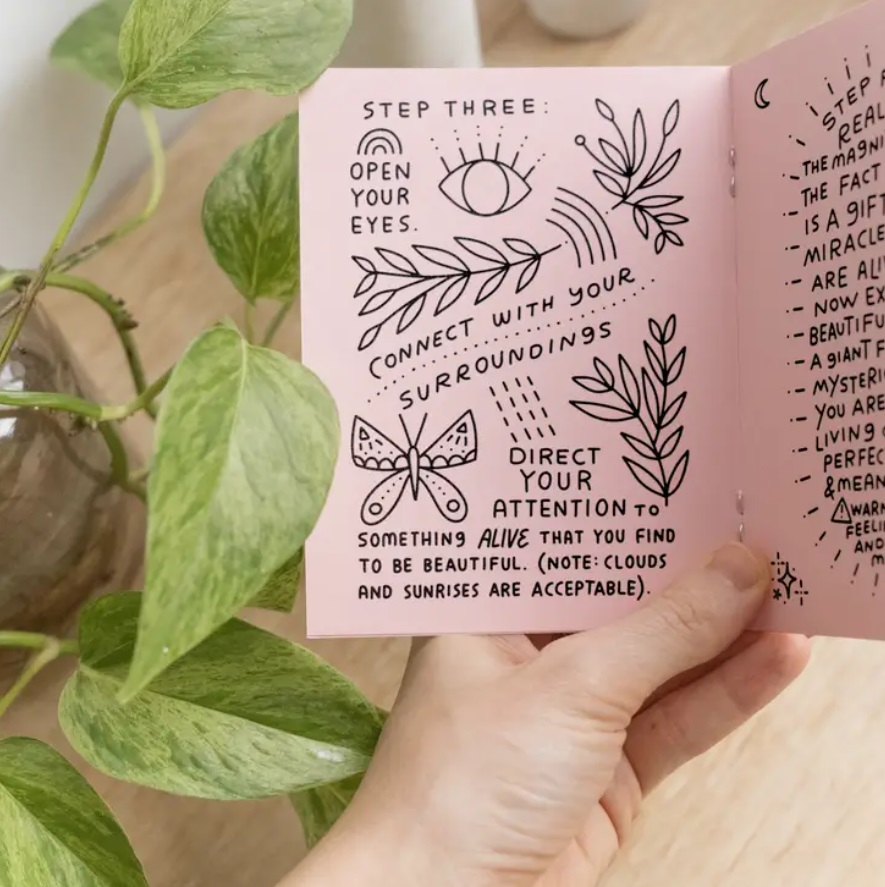 STEP THREE:
OPEN
YOUR
EYES.
CONNECT WITH YOUR
SURROUNDINGS
DIRECT
YOUR
ATTENTION TO
SOMETHING ALIVE THAT YOU FIND
TO BE BEAUTIFUL. (NOTE: CLOUDS
AND SUNRISES ARE ACCEPTABLE).
STEP
REAL
THE MAGNI
THE FACT
IS A GIFT
MIRACLE
ARE ALI
NOW EX
BEAUTIFU
A GIANT
MYSTERI
YOU ARE
LIVING
PERFEC
& MEAN
WARN
FEELI
AND